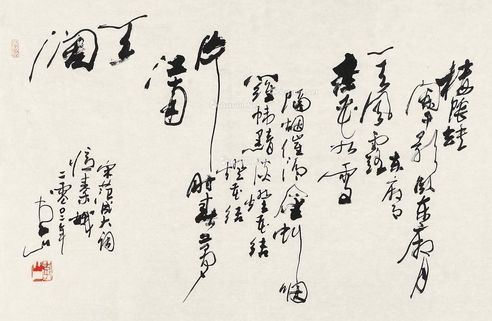 楼阴缺
阑干影卧东厢月
东厢月
一天风露
杏花如雪
隔烟催漏金虬咽
罗帏暗淡灯花结
灯花结
片时春梦
江南
天
阔
宋范成大词
忆秦娥